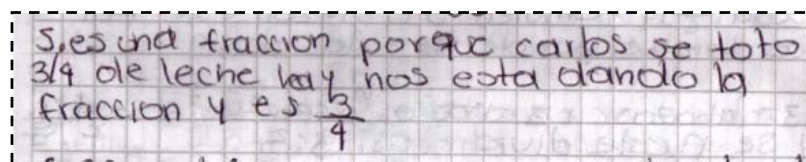 S.es una fraccion porque carlos se toto
3/4 de leche hay nos esta dando la
fraccion y es 3/4